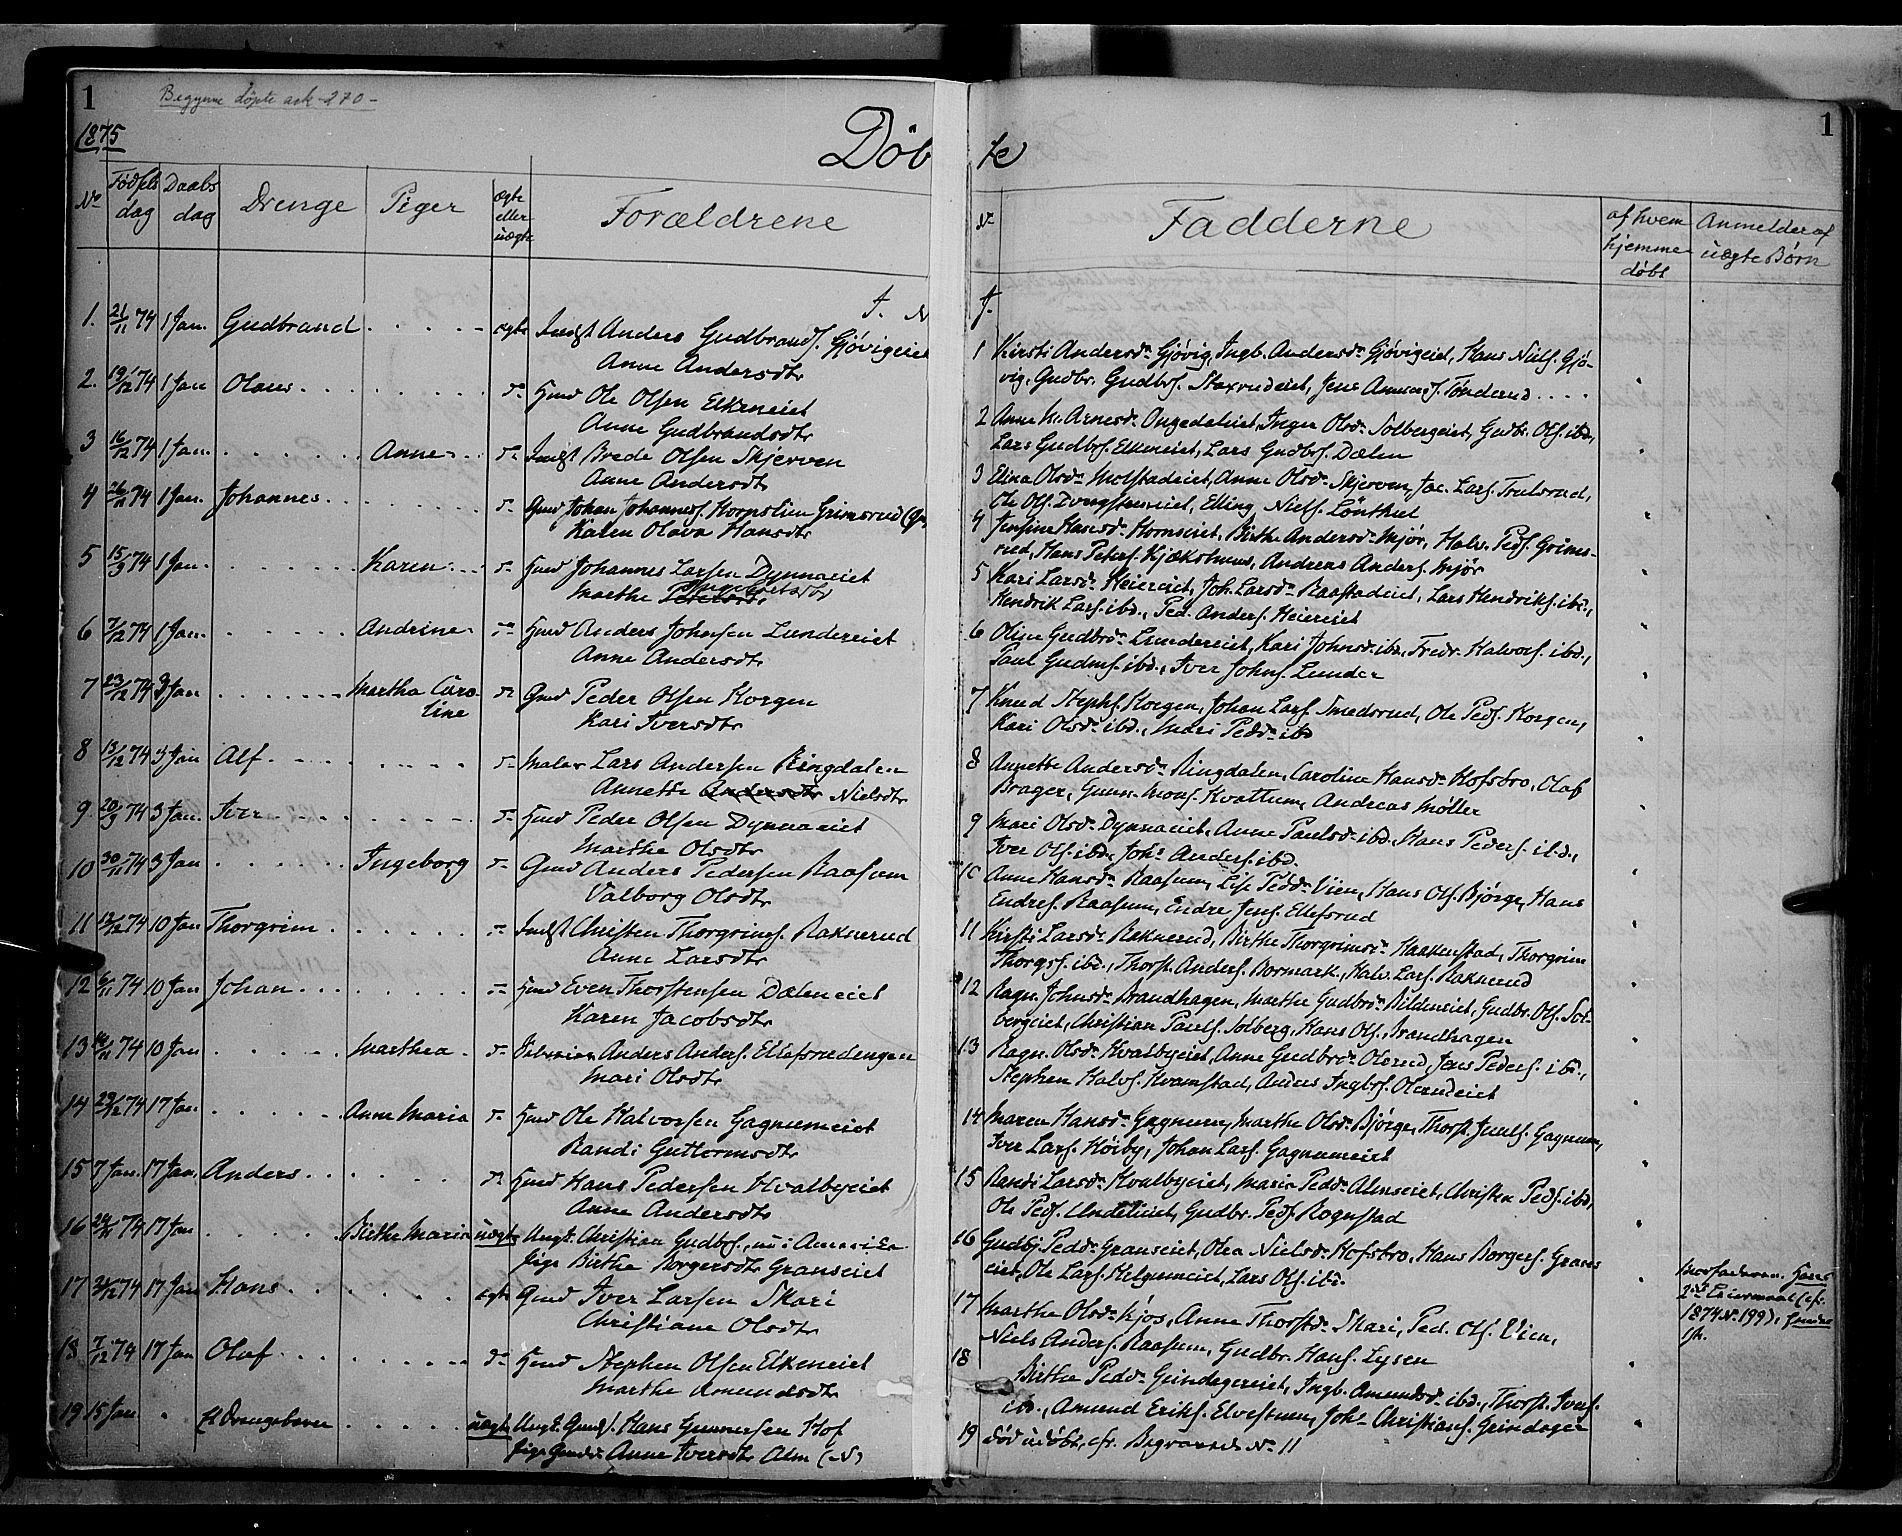 1
Begynne døpte ark 270 -
1875
Døb
№
Fødsels dag
Daabs dag
Drenge
Piger
ægte eller uægte
Forældrene
1. 21/11 74 1 Jan. Gudbrand ægte Indst Anders Gudbrands. Gjøvigeiet
Anne Andersdtr
2. 19/12 74 1 Jan Olaus do Husd Ole Olsen Elkeneiet
Anne Gudbrandsdtr
3 16/12 74 1 Jan. Anne do Indst Brede Olsen Skjerven
Anne Andersdtr
4 26/11 74 1 Jan. Johannes do Gmd Johan Johannes. Hornslien Grimsrud
Karen Olava Hansdtr
5 15/9 74 1 Jan. Karen do Husd Johannes Larsen Dynnaeiet
Marthe
6 7/12 74 1 Jan. Andrine do Husd Anders Johnsen Lundereiet
Anne Andersdtr
7 23/12 74 3 Jan Martha Caro-
line do Gmd Peder Olsen Korgen
Kari Iversdtr
8 13/12 74 3 Jan Alf do Maler Lars Andersen Ringdalen
Annette Andersdtr Nielsdtr
9. 20/9 74 3 Jan. Iver do Husd Peder Olsen Dynnaeiet
Marthe Olsdtr
10 30/11 74 3 Jan Ingeborg do Gmd Anders Pedersen Raasum
Valborg Olsdtr
11 12/12 74 10 Jan Thorgrim do Indst Christen Thorgrims. Raknerud
Anne Larsdtr
12 6/11 74 10 Jan Johan do Husd Even Thorstensen Dæleneiet
Karen Jacobsdtr
13 74 10 Jan Marthea do Anders Anders. Ellefsrudengen
Mari Olsdtr
14 29/12 74 17 Jan Anne Maria do Husd Ole Halvorsen Gagnumeiet
Randi Guttormsdtr
15 7 Jan. 17 Jan. Anders do Husd Hans Pedersen Hvalbyeiet
Anne Andersdtr
16 74 17 Jan Birthe Maria uægte Ungk. Christian Gudbrs., nu i Amerika
Pige Birthe Borgersdtr Granseiet
17 74 17 Jan Hans ægte Gmd Iver Larsen Skari
Christiane Olsdtr
18 7/12 74 17 Jan Oluf do Husd Stephen Olsen Elkeneiet
Marthe Amundsdtr
19 15 Jan. " Et Drengebarn uægte Ungk. Hans Gunnersen Hof
Pige Anne Iversdtr Alm
te
1
№
Fadderne
af hvem hjemme døbt
Anmelder af uægte Børn
1 Kirsti Andersdr Gjøvig, Ingb. Andersdr Gjøvigeiet, Hans Niels. Gjø-
vig, Gudbr. Gudbrs. Staxrudeiet, Jens Amunds. Tønderud
2 Anne M. Arnesdr Ongedaleiet, Inger Olsdr Solbergeiet, Gudbr. Ols. ibd.,
Lars Gudbrs. Elkeneiet, Lars Gudbrs. Dælen
3 Elina Olsdr Molstadeiet, Anne Olsdr Skjerven, Jac. Lars. Trulsrud,
Ole Ols. Elling Niels.
4 Jensine Hansdr Hornseiet, Birthe Andersdr Mjør, Halv. Peds. Grims-
rud, Hans Peders. Kjækshuus, Andreas Anders. Mjør
5 Kari Larsdr Heiereiet, Joh. Larsdr Raastadeiet, Lars Hendriks. ibd.,
Hendrik Lars. ibd., Ped. Anders. Heiereiet
6 Oline Gudbrdr Lundereiet, Kari Johnsdr ibd., Fredr. Halvors. ibd.,
Paul Gudms. ibd., Iver Johns. Lunder
7 Knud Stephs. Korgen, Johan Lars. Smedsrud, Ole Peds. Korgen,
Kari Olsdr ibd., Mari Peddr ibd
8 Annette Andersdr Ringdalen, Caroline Hansdr Hofsbro, Olaf
Brager, Gunn. Mons. Kvattum, Andreas Møller
9 Mari Olsdr Dynnaeiet, Anne Paulsdr ibd., Hans Peders. ibd.,
Iver Ols. ibd., Johs Anders. ibd.
10 Anne Hansdr Raasum, Lise Peddr Vien, Hans Ols. Bjørge, Hans
Endres. Raasum, Endre Jens. Ellefsrud
11 Kirsti Larsdr Raknerud, Birthe Thorgrimsdr Haakenstad, Thorgrim
Thorgs. ibd., Thorst. Anders. Bormark, Halv. Lars. Raknerud
12 Ragn. Johnsdr Brandhagen, Marthe Gudbrdr Bildeneiet, Gudbr. Ols. Sol-
bergeiet, Christian Pauls. Solberg, Hans Ols. Brandhagen
13 Ragn. Olsdr Hvalbyeiet, Anne Gudbrdr Olerud, Jens Peders. ibd.,
Stephen Halvs. Kvamstad, Anders Ingbrs. Olerudeiet
14 Maren Hansdr Gagnum, Marthe Olsdr Bjørge, Thorst. Juuls. Gagnum,
Iver Lars. Høiby, Johan Lars. Gagnumeiet
15 Randi Larsdr Hvalbyeiet, Maria Peddr Almseiet, Christen Peds. ibd.,
Ole Peds. Gudbr. Peds. Rognstad
16 Gudbj. Peddr Granseiet, Olea Nielsdr Hofsbro, Hans Borgers. Grans-
eiet, Ole Lars. Helgumeiet, Lars Ols. ibd.
17 Marthe Olsdr Kjos, Anne Thorstdr Skari, Ped. Ols. Vien,
Niels Anders. Raasum, Gudbr. Hans. Lysen
18 Birthe Peddr Grindagereiet, Ingb. Amundsdr ibd., Thorst. Ivers.
ibd., Amund Eriks. Elvestuen, Johs Christians. Grindager
19 Død udøbt, cfr. Begravede № 11
Morfaderen. Hans
2det Leiermaal (cfr.
1874 № 199),